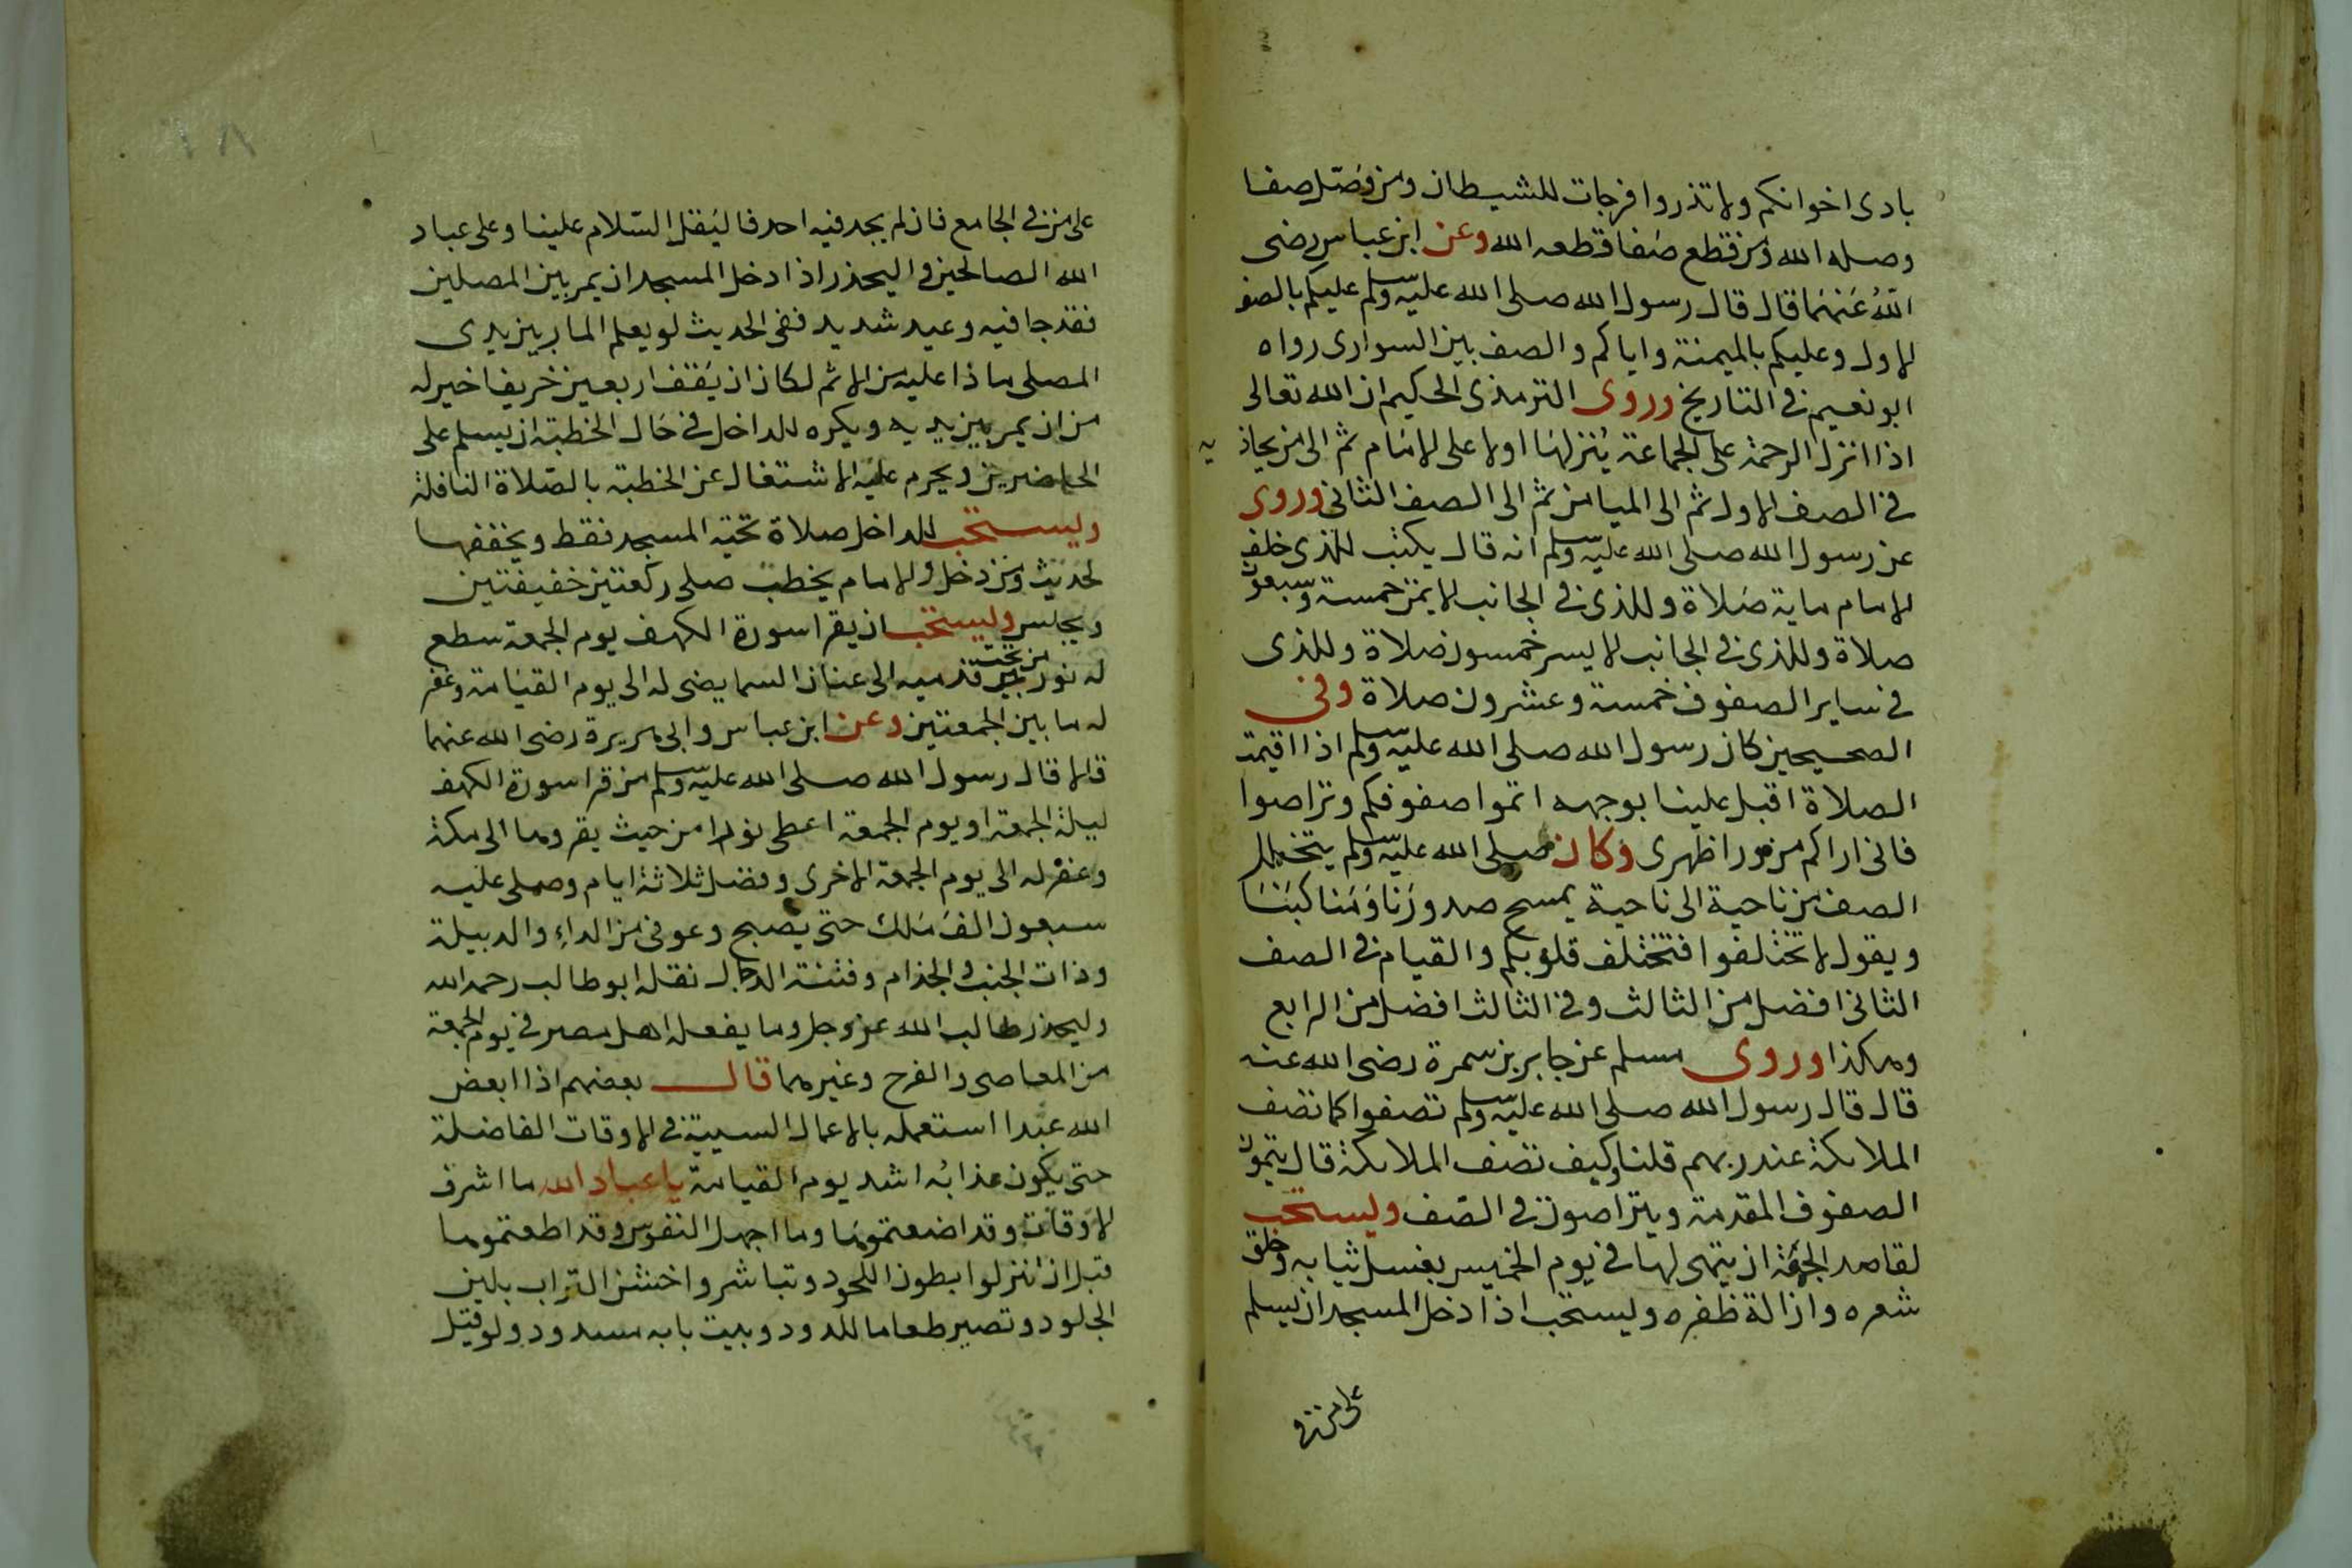 بادى اخوانكم ولا تذروا فرجات للشيطان ومن وصل صفا
وصله الله ومن قطع صفا قطعه الله وعن ابن عباس رضى
الله عنهما قال قال رسول الله صلى الله عليه وسلم عليكم بالصف
الاول وعليكم بالميمنة واياكم والصف بين السوارى رواه
ابو نعيم فى التاريخ وروى الترمذى الحكيم ان الله تعالى
اذا انزل الرحمة على الجماعة ينزلها اولا على الامام ثم الى من يحاذيه
فى الصف الاول ثم الى الميامن ثم الى الصف الثانى وروى
عن رسول الله صلى الله عليه وسلم انه قال يكتب للذى خلف
الامام ماية صلاة وللذى فى الجانب الايمن خمسة وسبعون
صلاة وللذى فى الجانب الايسر خمسون صلاة وللذى
فى ساير الصفوف خمسة وعشرون صلاة وفى
الصحيحين كان رسول الله صلى الله عليه وسلم اذا اقيمت
الصلاة اقبل علينا بوجهه اتموا صفوفكم وتراصوا
فانى اراكم من ورا ظهرى وكان صلى الله عليه وسلم يتخلل
الصف من ناحية الى ناحية يمسح صدورنا ومناكبنا
ويقول لا تختلفوا فتختلف قلوبكم والقيام فى الصف
الثانى افضل من الثالث وفى الثالث افضل من الرابع
وهكذا وروى مسلم عن جابر بن سمرة رضى الله عنه
قال قال رسول الله صلى الله عليه وسلم تصفوا كما تصف
الملائكة عند ربهم قلنا وكيف تصف الملائكة قال يتمون
الصفوف المقدمة ويتراصون فى الصف وليستحب
لقاصد الجمعة ان يتهى لها فى يوم الخميس بغسل ثيابه وحلق
شعره وازالة ظفره وليستحب اذا دخل المسجد ان يسلم
على من فى
على من فى الجامع فان لم يجد فيه احد فاليقل السلام علينا وعلى عباد
الله الصالحين واليحذر اذا دخل المسجد ان يمر بين المصلين
فقد جا فيه وعيد شديد ففى الحديث لو يعلم المار بين يدى
المصلى ماذا عليه من الاثم لكان ان يقف اربعين خريفا خير له
من ان يمر بين يديه ويكره للداخل فى حال الخطبة ان يسلم على
الحاضرين ويحرم عليه الاشتغال عن الخطبة بالصلاة النافلة
وليستحب للداخل صلاة تحية المسجد فقط ويخففها
لحديث ومن دخل والامام يخطب صلى ركعتين خفيفتين
ويجلس وليستحب ان يقرا سورة الكهف يوم الجمعة سطع
له نور من تحت قدميه الى عنان السما يضى له الى يوم القيامة وغفر
له ما بين الجمعتين وعن ابن عباس وابى هريرة رضى الله عنهما
قالا قال رسول الله صلى الله عليه وسلم من قرا سورة الكهف
ليلة الجمعة او يوم الجمعة اعطى نورا من حيث يقروها الى مكة
وغفر له الى يوم الجمعة الاخرى وفضل ثلاثة ايام وصلى عليه
سبعون الف ملك حتى يصبح وعوفى من الداء والدبيلة
وذات الجنب والجذام وفتنة الدجال نقله ابو طالب رحمه الله
وليحذر طالب الله عز وجل وما يفعله اهل مصر فى يوم الجمعة
من المعاصى والفرح وغيرهما قال بعضهم اذا ابعض
الله عبدا استعمله بالاعمال السيية فى الاوقات الفاضلة
حتى يكون عذابه اشد يوم القيامة يا عباد الله ما اشرف
الاوقات وقد اضعتموها وما اجهل النفوس وقد اطعتموها
قبل ان تنزلوا بطون اللحود وتباشروا خشن التراب بلين
الجلود وتصير طعاما للدود وبيت بابه مسدود ولو قيل